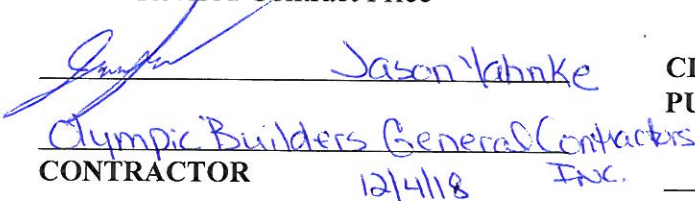 Jason Yahnke
CI
PU
Olympic Builders General Contractors
CONTRACTOR 12/4/18 INC.